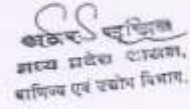 अवर सचिव
मध्य प्रदेश शासन,
वाणिज्य एवं उद्योग विभाग,